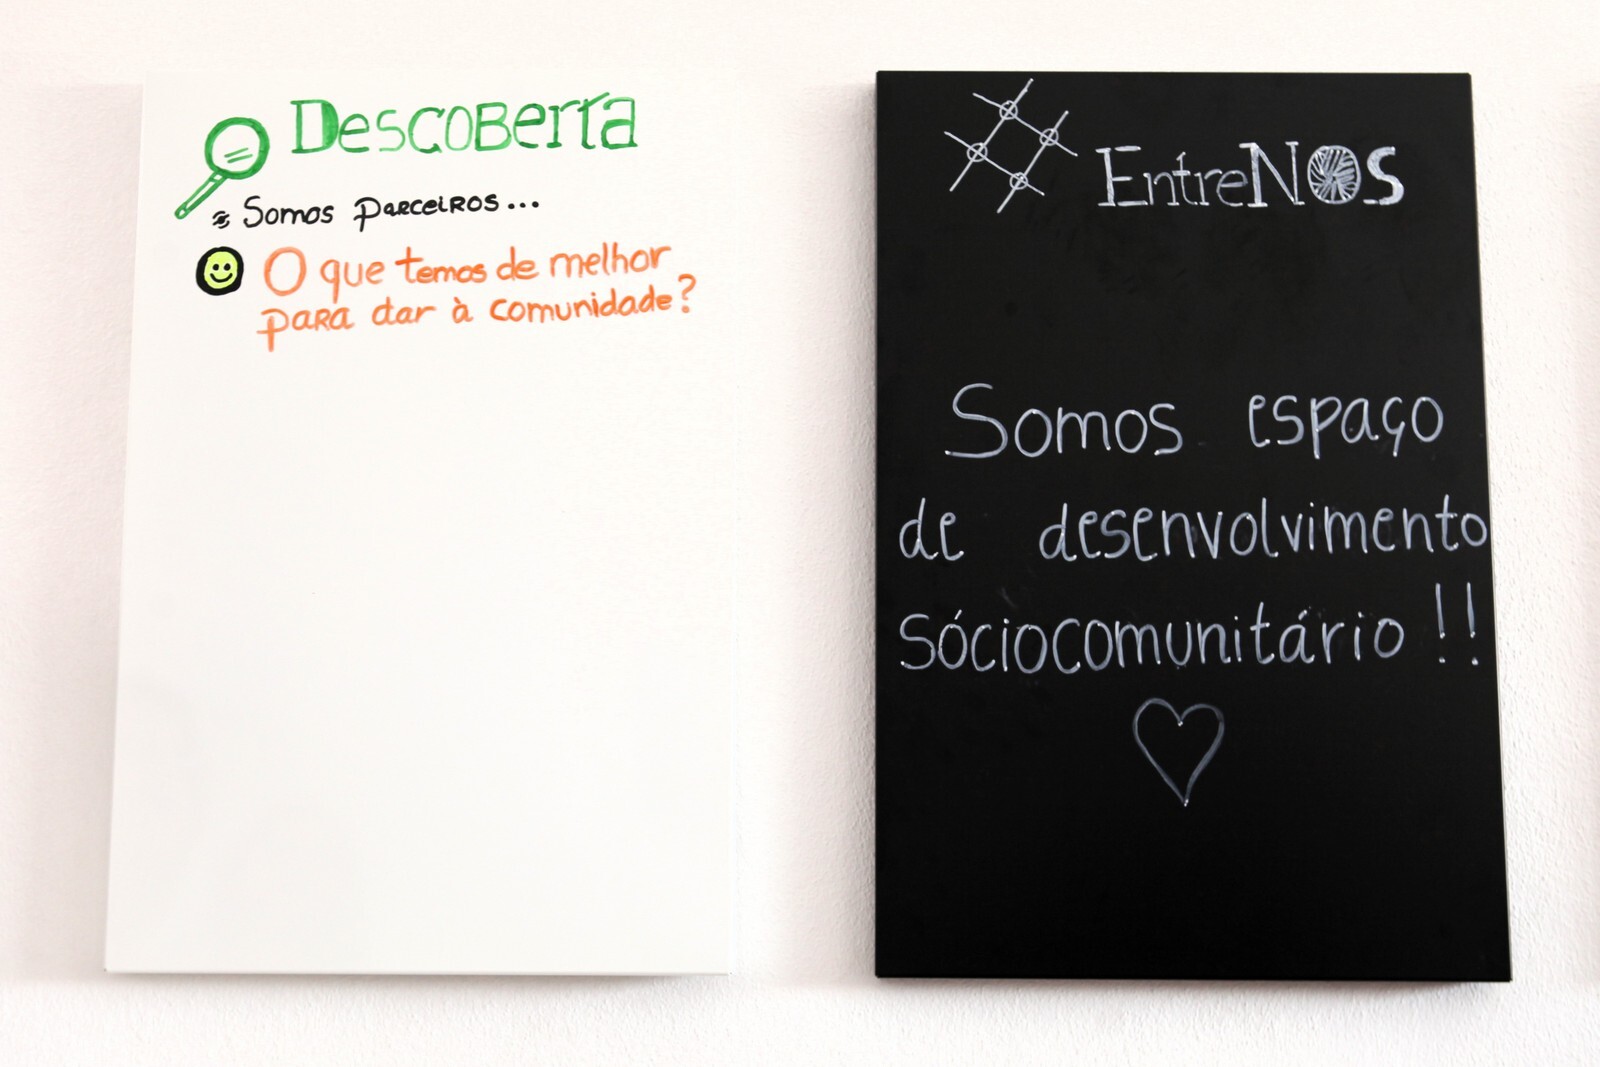 Descoberta
Somos Parceiros...
O que temos de melhor
para dar à comunidade?
EntreNOS
Somos espaço
de desenvolvimento
sóciocomunitário!!